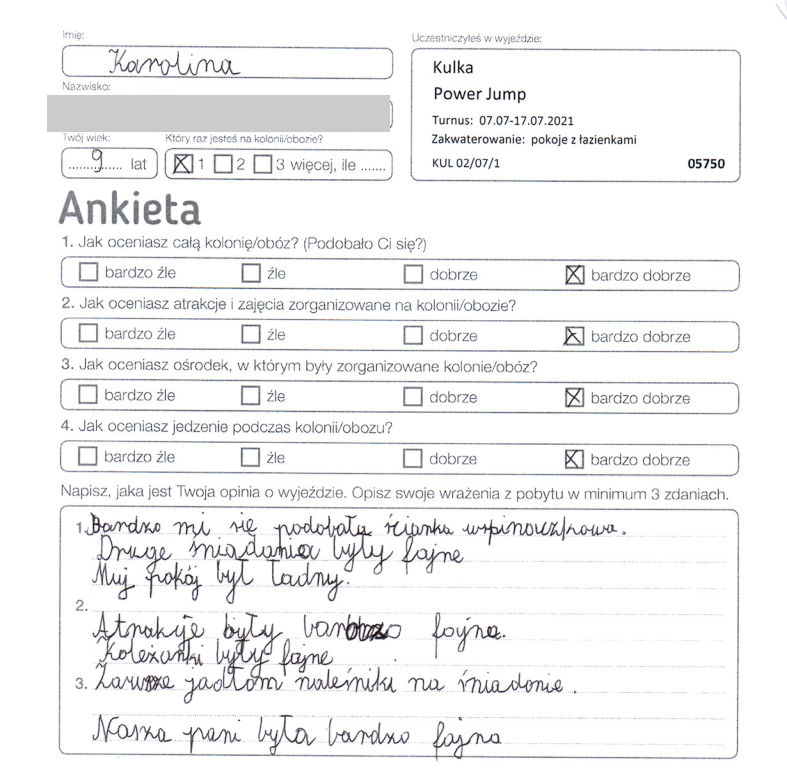 Imię:
Karolina
Uczestniczyłeś w wyjeździe:
Kulka
Power Jump
Turnus: 07.07-17.07.2021
Zakwaterowanie: pokoje z łazienkami
KUL 02/07/1 05750
Nazwisko:
Twój wiek:
9 lat
Który raz jesteś na kolonii/obozie?
1 2 3 więcej, ile .......
Ankieta
1. Jak oceniasz całą kolonię/obóz? (Podobało Ci się?)
bardzo źle źle dobrze bardzo dobrze
2. Jak oceniasz atrakcje i zajęcia zorganizowane na kolonii/obozie?
bardzo źle źle dobrze bardzo dobrze
3. Jak oceniasz ośrodek, w którym były zorganizowane kolonie/obóz?
bardzo źle źle dobrze bardzo dobrze
4. Jak oceniasz jedzenie podczas kolonii/obozu?
bardzo źle źle dobrze bardzo dobrze
Napisz, jaka jest Twoja opinia o wyjeździe. Opisz swoje wrażenia z pobytu w minimum 3 zdaniach.
1. Bardzo mi się podobała ścianka
Druge śniadania były fajne
Muj pokój był ładny.
2.
Atrakyje były bardzo fajne.
Koleżanki były fajne
3. Zawsze jadłam naleśniki na śniadonie.
Nasza pani była bardzo fajna